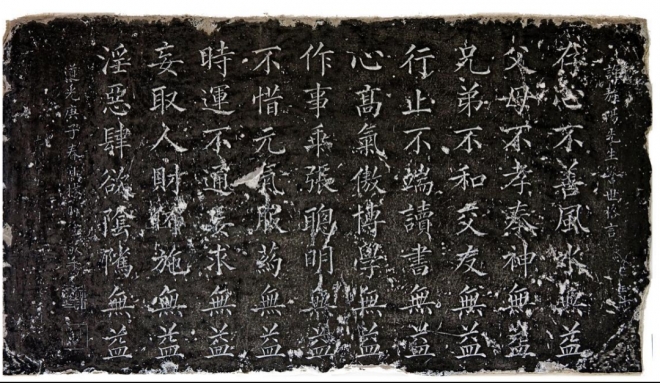 先生 世格言
存心不善風水無益
父母不孝奉神無益
兄弟不和交友無益
行止不端讀書無益
心髙氣傲博學無益
作事乖張聰明無益
不惜元氣服葯無益
時運不通妄求無益
妄取人財施無益
淫惡肆欲隂騭無益
道光庚子春